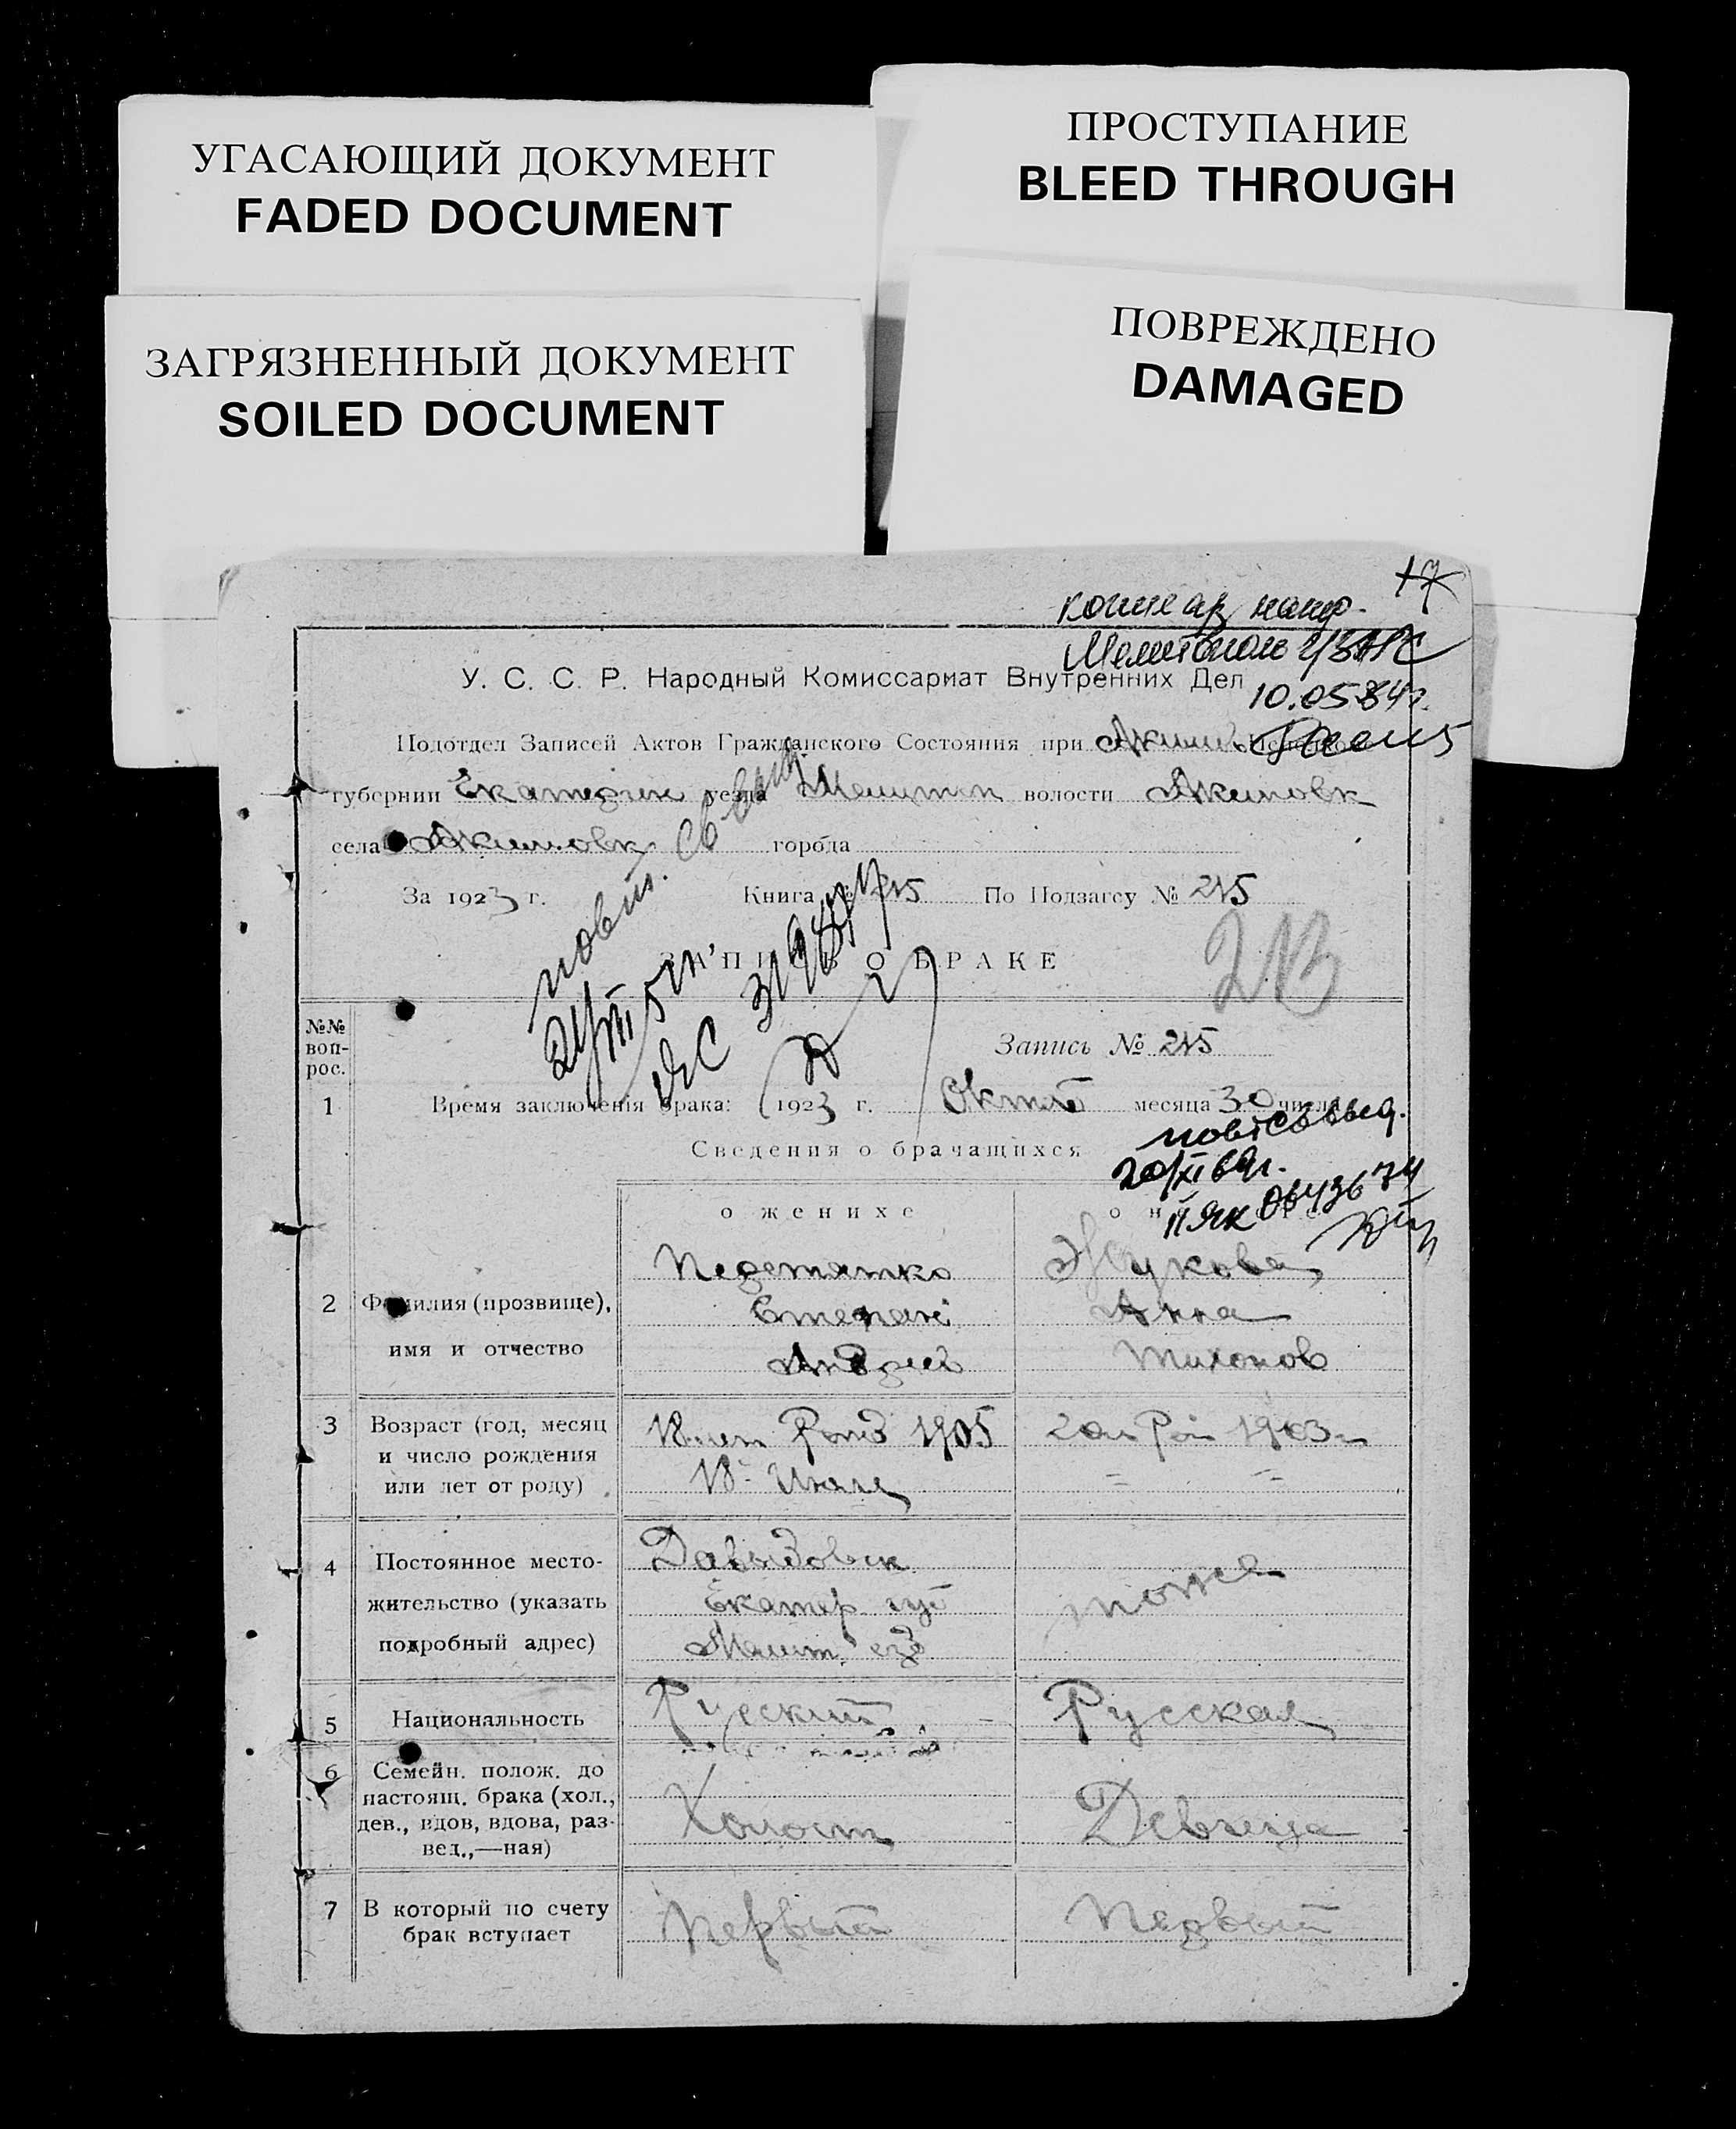 УГАСАЮЩИЙ ДОКУМЕНТ
FADED DOCUMENT
ПРОСТУПАНИЕ
BLEED THROUGH
ЗАГРЯЗНЕННЫЙ ДОКУМЕНТ
SOILED DOCUMENT
ПОВРЕЖДЕНО
DAMAGED
17
У. С. С. Р. Народный Комиссариат Внутренних Дел
10.05.84г.
Подотдел Записей Актов Гражданского Состояния при
губернии Екатерин уезда Мелитоп волости Акимовк
села Акимовк города
За 1923 г. Книга № 215 По Подзагсу № 215
ЗАПИСЬ О БРАКЕ
213
№№ воп-
рос.
Запись № 215
1 Время заключенія брака: 1923 г. Октяб месяца 30 числа
Сведения о брачащихся
о женихе
2 Фамилия (прозвище),
имя и отчество
Степан
Андрей
Жукова
Анна
Тихонов
3 Возраст (год, месяц
и число рождения
или лет от роду)
18 лет Рожд 1905
18 Июля
20 л Рож 1903
4 Постоянное место-
жительство (указать
подробный адрес)
Давыдовк
Екатер губ
Мелит. уезд
тоже
5 Национальность
Русский
Русская
6 Семейн. полож. до
настоящ. брака (хол.,
дев., вдов, вдова, раз-
вед.,—ная)
Холост
Девица
7 В который по счету
брак вступает
Первый
Первый